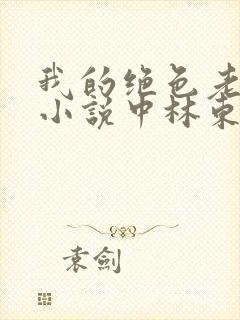 我的绝色老
小说中林东
袁劍